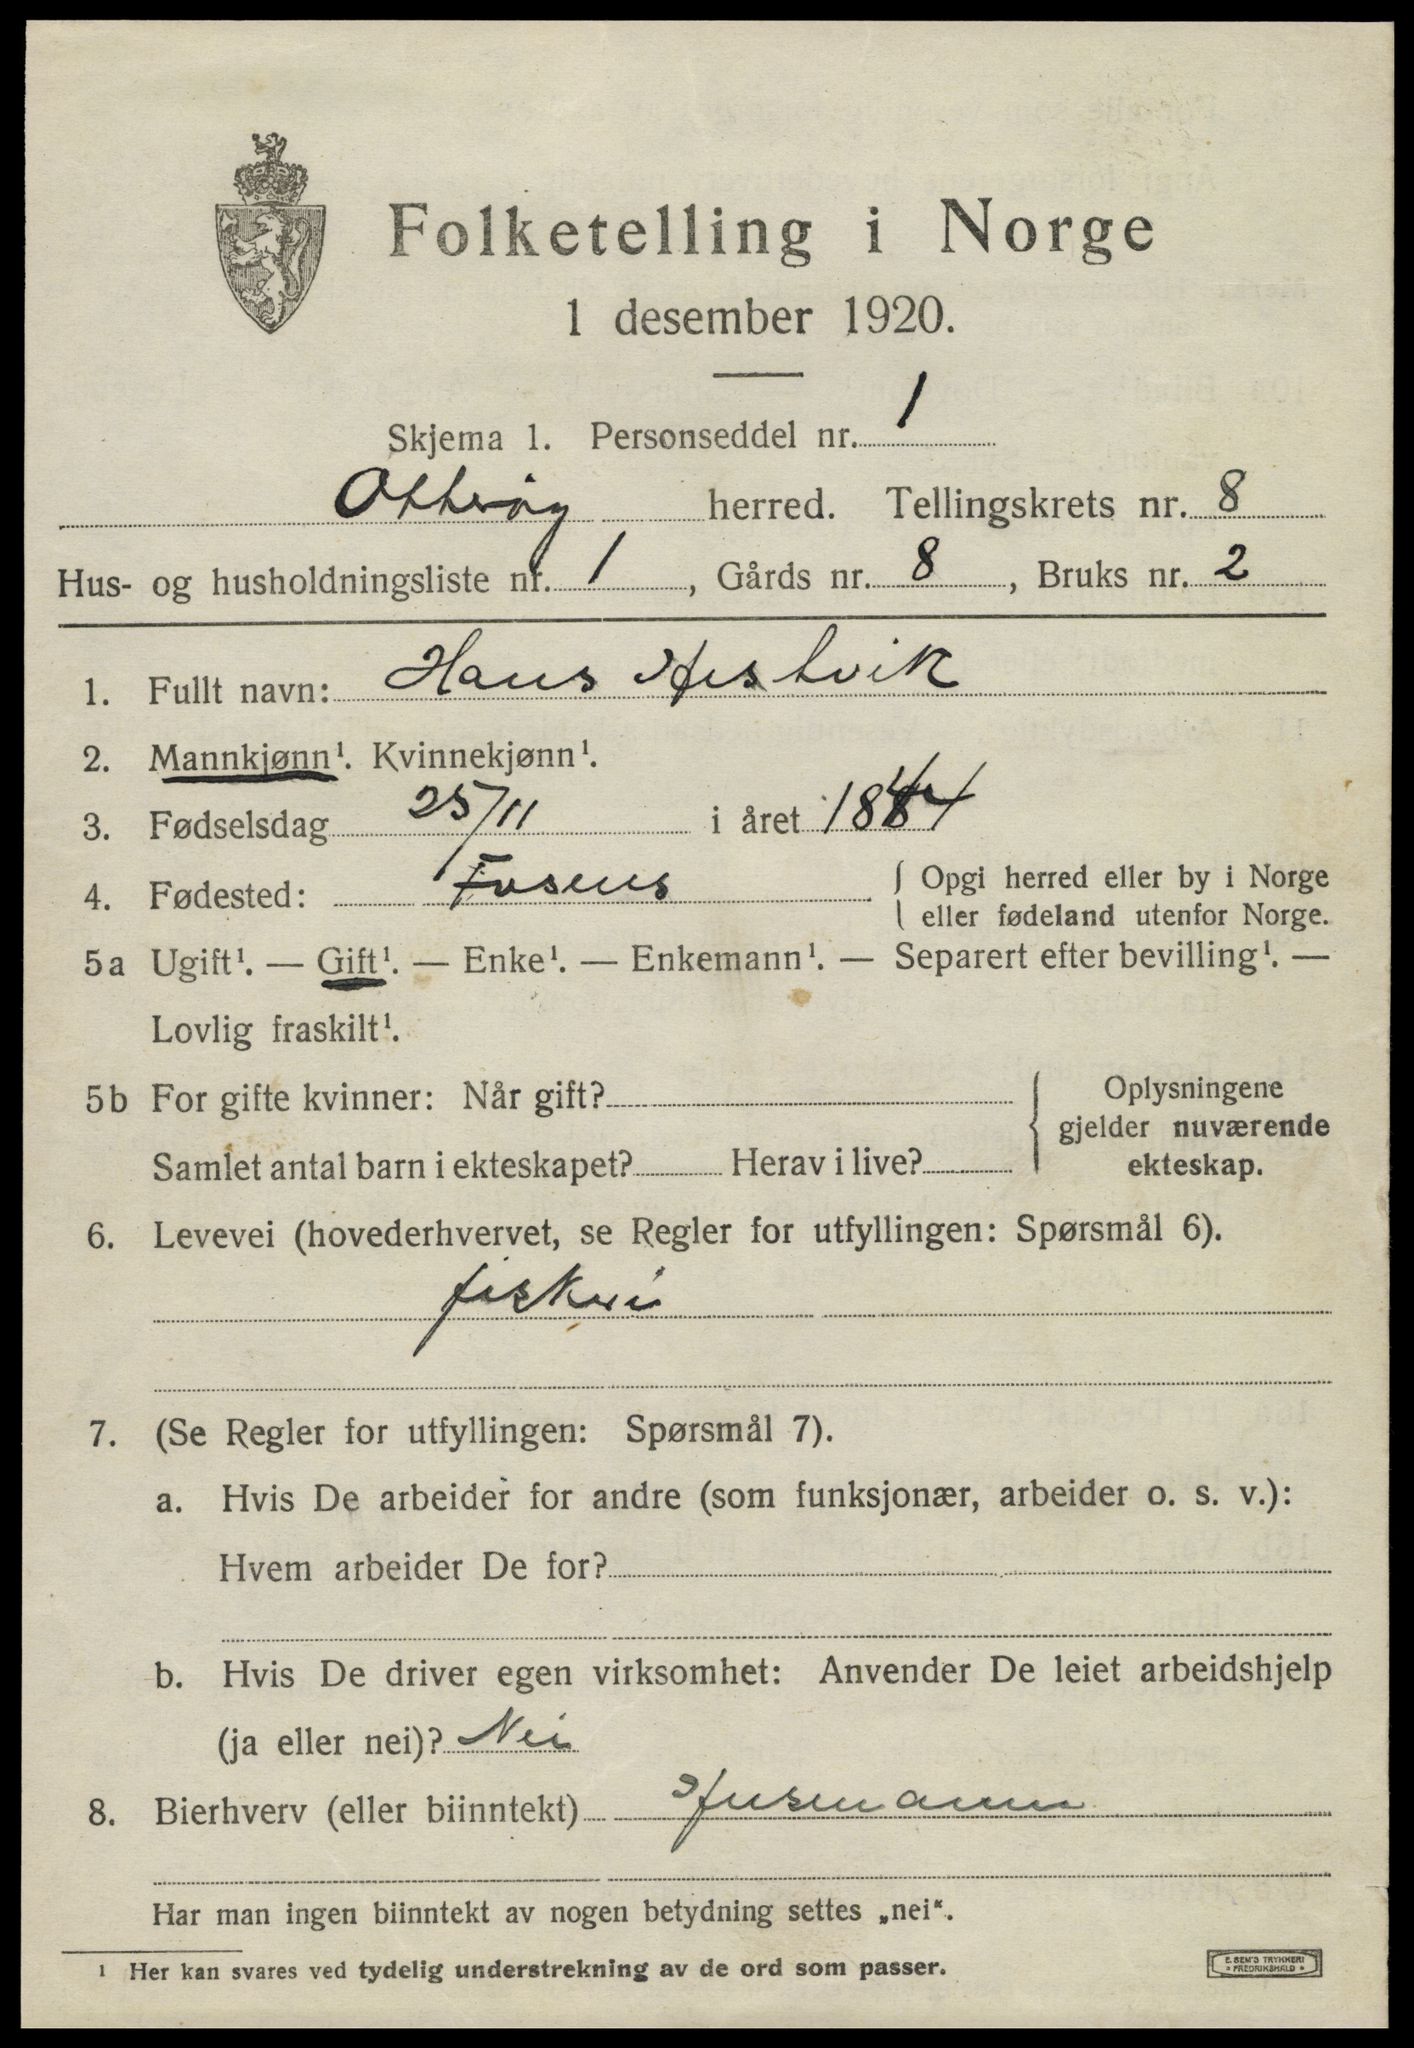 Folketelling i Norge
1 desember 1920.
Skjema 1. Personseddel nr. 1
Otterøy herred. Tellingskrets nr. 8
Hus- og husholdningsliste nr. 1, Gårds nr. 8, Bruks nr. 2
1. Fullt navn: Hans Hestvik
2. Mannkjønn¹. Kvinnekjønn¹.
3. Fødselsdag 25/11 i året 1844
4. Fødested: Fosens { Opgi herred eller by i Norge
eller fødeland utenfor Norge.
5a Ugift¹. — Gift¹. — Enke¹. — Enkemann¹. — Separert efter bevilling¹. —
Lovlig fraskilt¹.
5b For gifte kvinner: Når gift? { Oplysningene
gjelder nuværende
Samlet antal barn i ekteskapet? Herav i live? ekteskap.
6. Levevei (hovederhvervet, se Regler for utfyllingen: Spørsmål 6).
fiskeri
7. (Se Regler for utfyllingen: Spørsmål 7).
a. Hvis De arbeider for andre (som funksjonær, arbeider o. s. v.):
Hvem arbeider De for?
b. Hvis De driver egen virksomhet: Anvender De leiet arbeidshjelp
(ja eller nei)? Nei
8. Bierhverv (eller biinntekt) Husmann
Har man ingen biinntekt av nogen betydning settes „nei“.
¹ Her kan svares ved tydelig understrekning av de ord som passer.
E. SEM'S TRYKKERI
FREDRIKSHALD